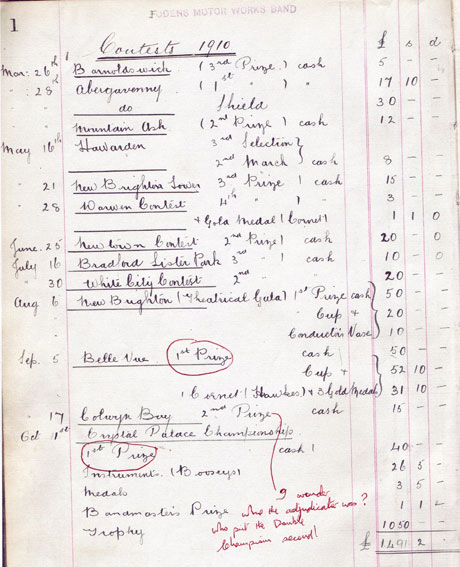 FODENS MOTOR WORKS BAND
1
Contests 1910 £ s d
Mar: 26th Barnoldswick (3rd Prize) cash 5 - -
" 28 Abergavenny (1st " ) " 17 10 -
do Shield 30 - -
Mountain Ash (2nd Prize) cash 12 - -
May 16th Hawarden 3rd Selection }
2nd March } cash 8 - -
" 21 New Brighton Tower 3rd Prize ) cash 15 - -
" 28 Darwen Contest 4th " ) " 3 - -
+ Gold Medal (Cornet) 1 1 0
June. 25 Newtown Contest 2nd Prize) cash 20 - 0
July 16 Bradford Lister Park 3rd " ) cash 10 - 0
" 30 White City Contest 2nd " 20 - -
Aug 6 New Brighton (Theatrical Gala) 1st Prize cash 50 - -
Cup + 20 - -
Conductor's Vase 10 - -
Sep. 5 Belle Vue 1st Prize cash 50 - -
" Cup + 52 10 -
(Cornet (Hawkes) + 3 Gold Medals 31 10 -
17 Colwyn Bay 2nd Prize cash 15 - -
Oct 1st Crystal Palace Championship
1st Prize cash ) 40 - -
Instrument. (Booseys) 26 5 -
Medals 3 5 -
Bandmaster's Prize 1 1 -
Trophy 1050 - -
£ 1491 2 -
I wonder
who the adjudicator was?
who put the Double
Champions second!